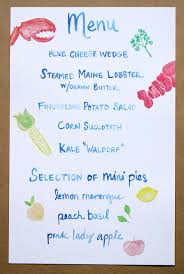 Menu
BLUE CHEESE WEDGE
STEAMED MAINE LOBSTER
W/DRAWN BUTTER
FINGERLING POTATO SALAD
CORN SUCCOTASH
KALE "WALDORF"
SELECTION OF mini pies
lemon merengue
peach basil
pink lady apple